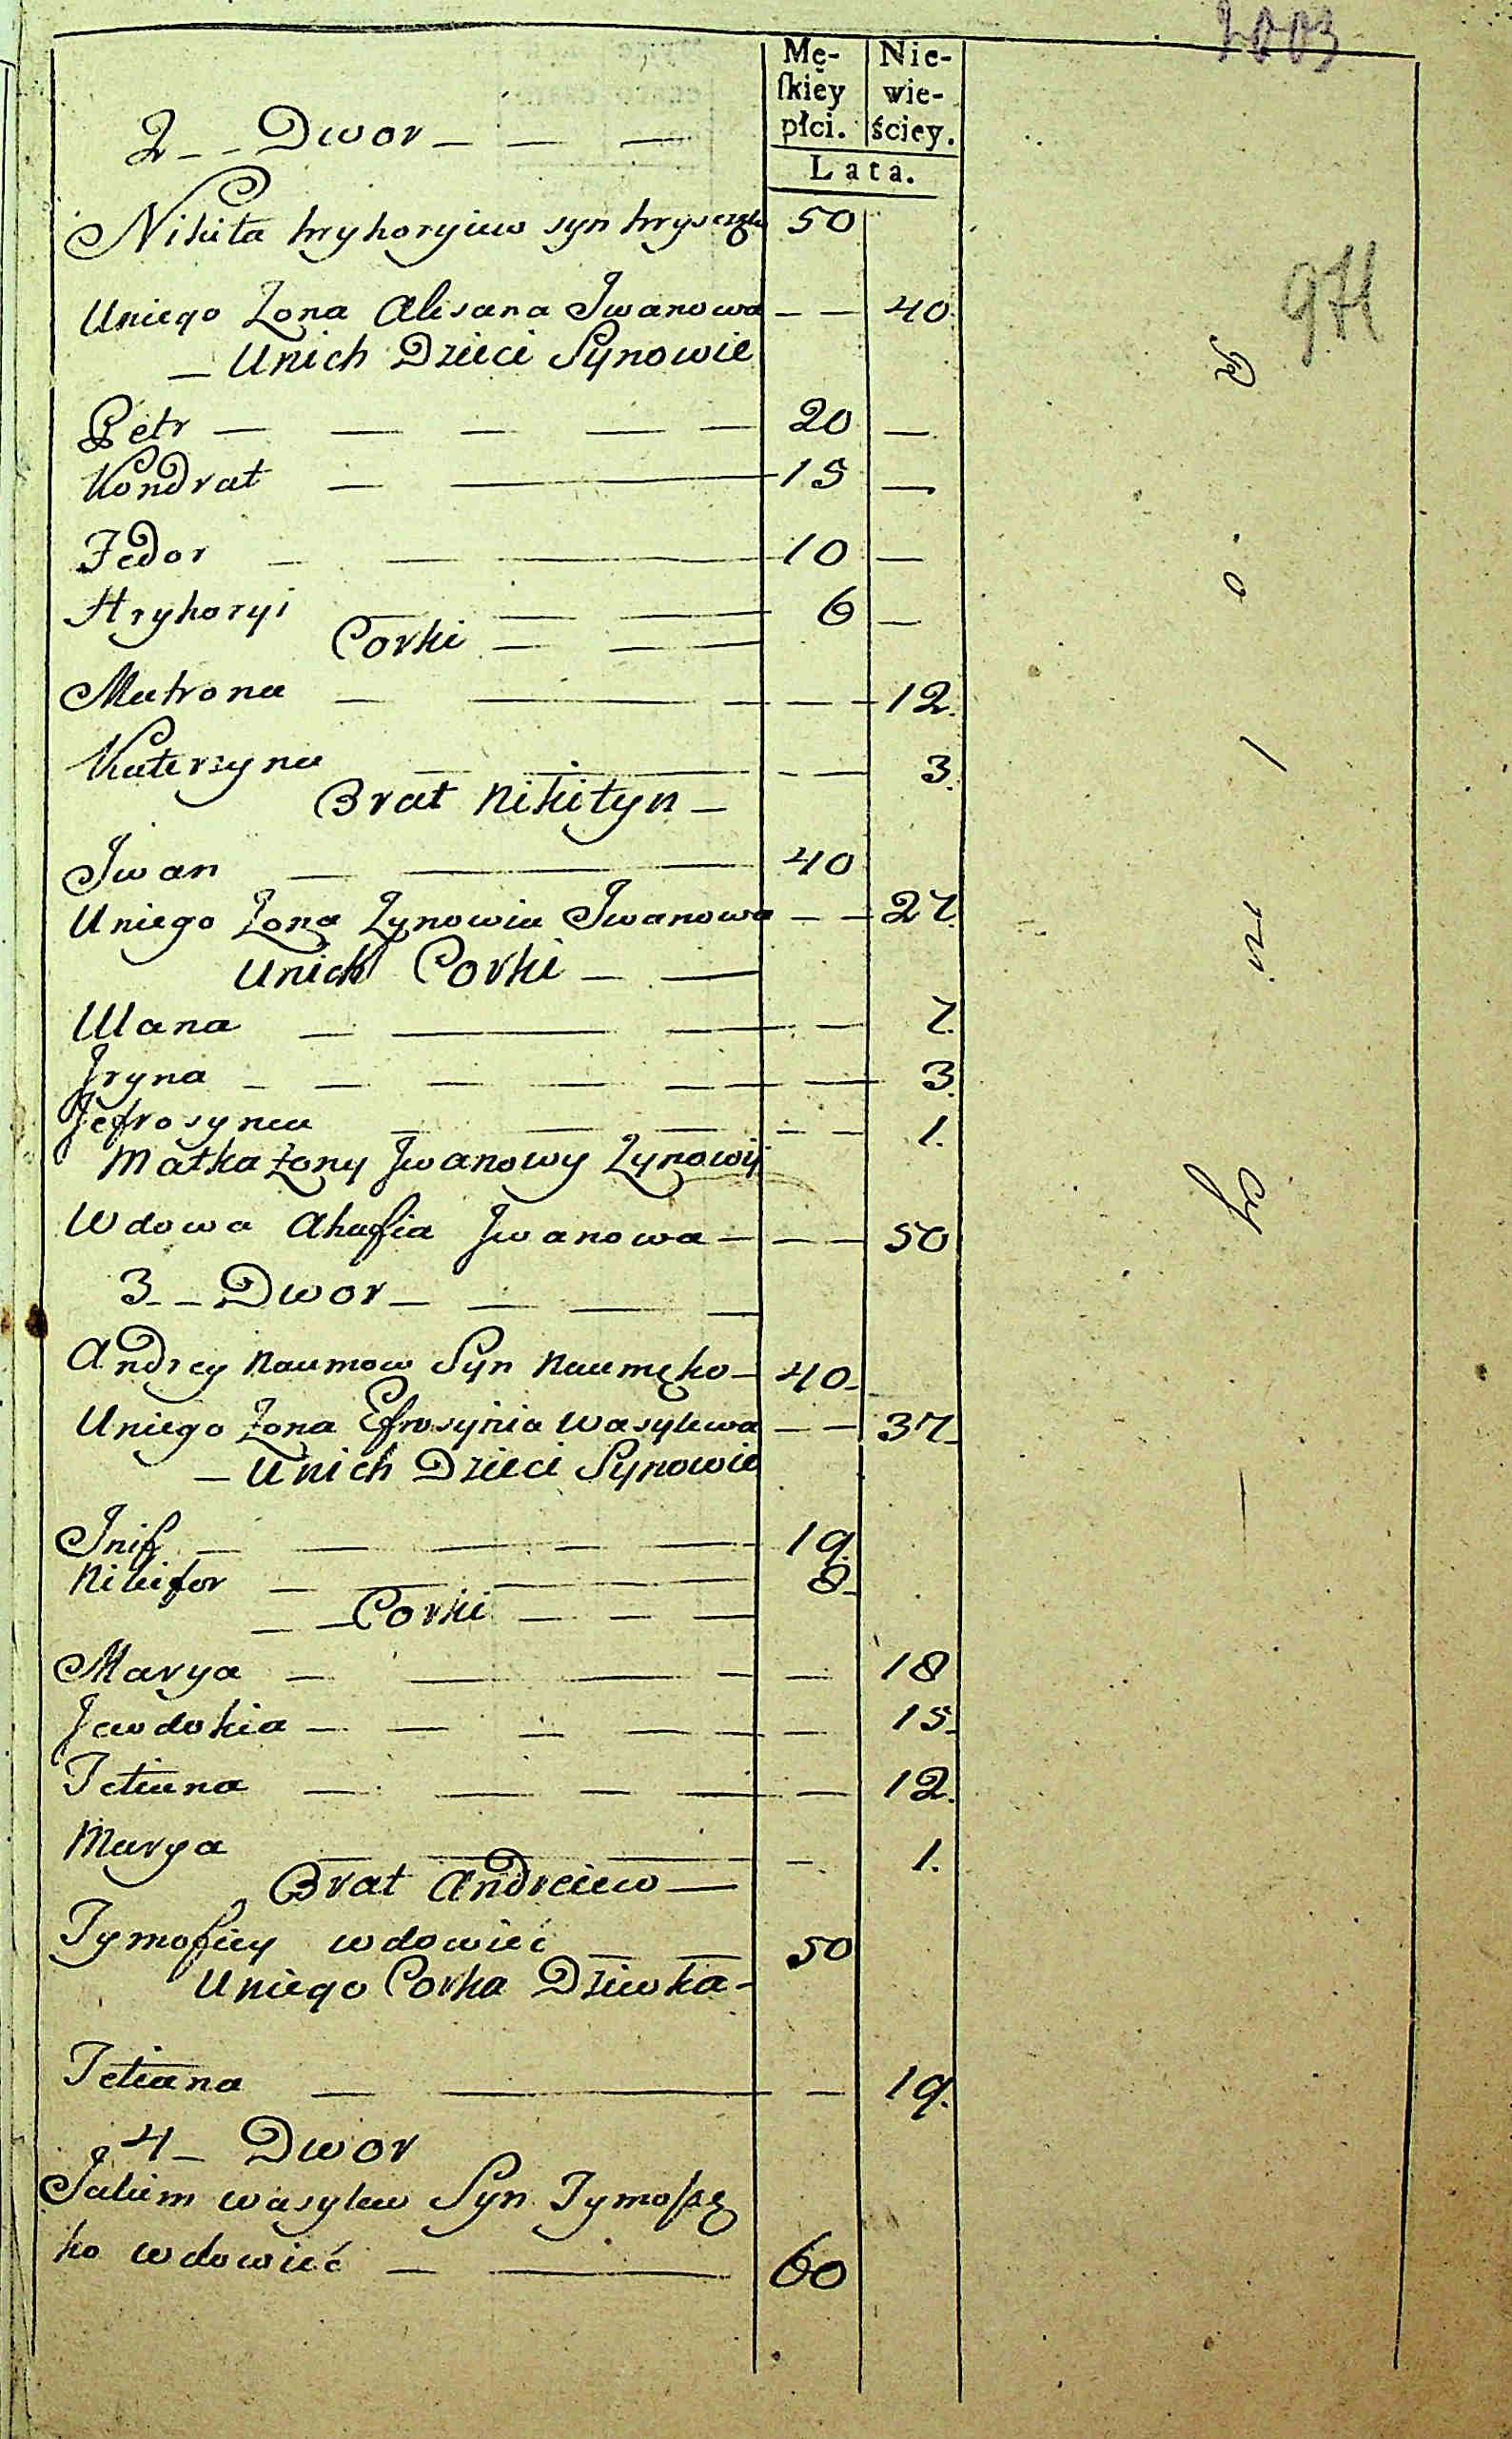 2003
Mę- Nie-
ſkiey wie-
płci. ściey.
Lata.
2 - - Dwor - — —
Nikita hryhoryiew syn 50
974
Uniego Żona Alexana Jwanowa - — 40
— Unich Dzieci Synowie
Petr — — — — — 20 —
Kondrat — — 15 —
Fedor — — 10 —
Hryhoryi — — — 6 —
Corki — — —
Matrona — — — — — 12.
Katerzyna — — — - — 3.
Brat Nikityn —
Jwan — — 40
Uniego Żona Zynowia Jwanowa — — 27.
Unich Corki — —
Ulana — — — — 7.
Jryna — — — — — — 3.
Jefrosynia — — — — — 1.
Matka Żony Jwanowy Zynowij
Wdowa Ahafia Jwanowa — — — 50
3 - - Dwor — — — —
Andrey Naumow Syn Naumęko — 40 -
Uniego Żona Efrosynia Wasylewa — — 37 -
— Unich Dzieci Synowie
— — — — — 19.
Nikifor — — — — 8 -
— — Corki — — —
Marya — — — — 18
Jewdokia — — — — — — 15 -
Tetiana — — — — — 12.
Marya — — — — 1.
Brat Andreiew —
Tymofiey wdowieć — — 50
Uniego Corka Dziewka -
Tetiana — — — 19.
4 - Dwor
Jakim Wasylew Syn Tymoszę
ko wdowieć — — 60
R o l ni cy —